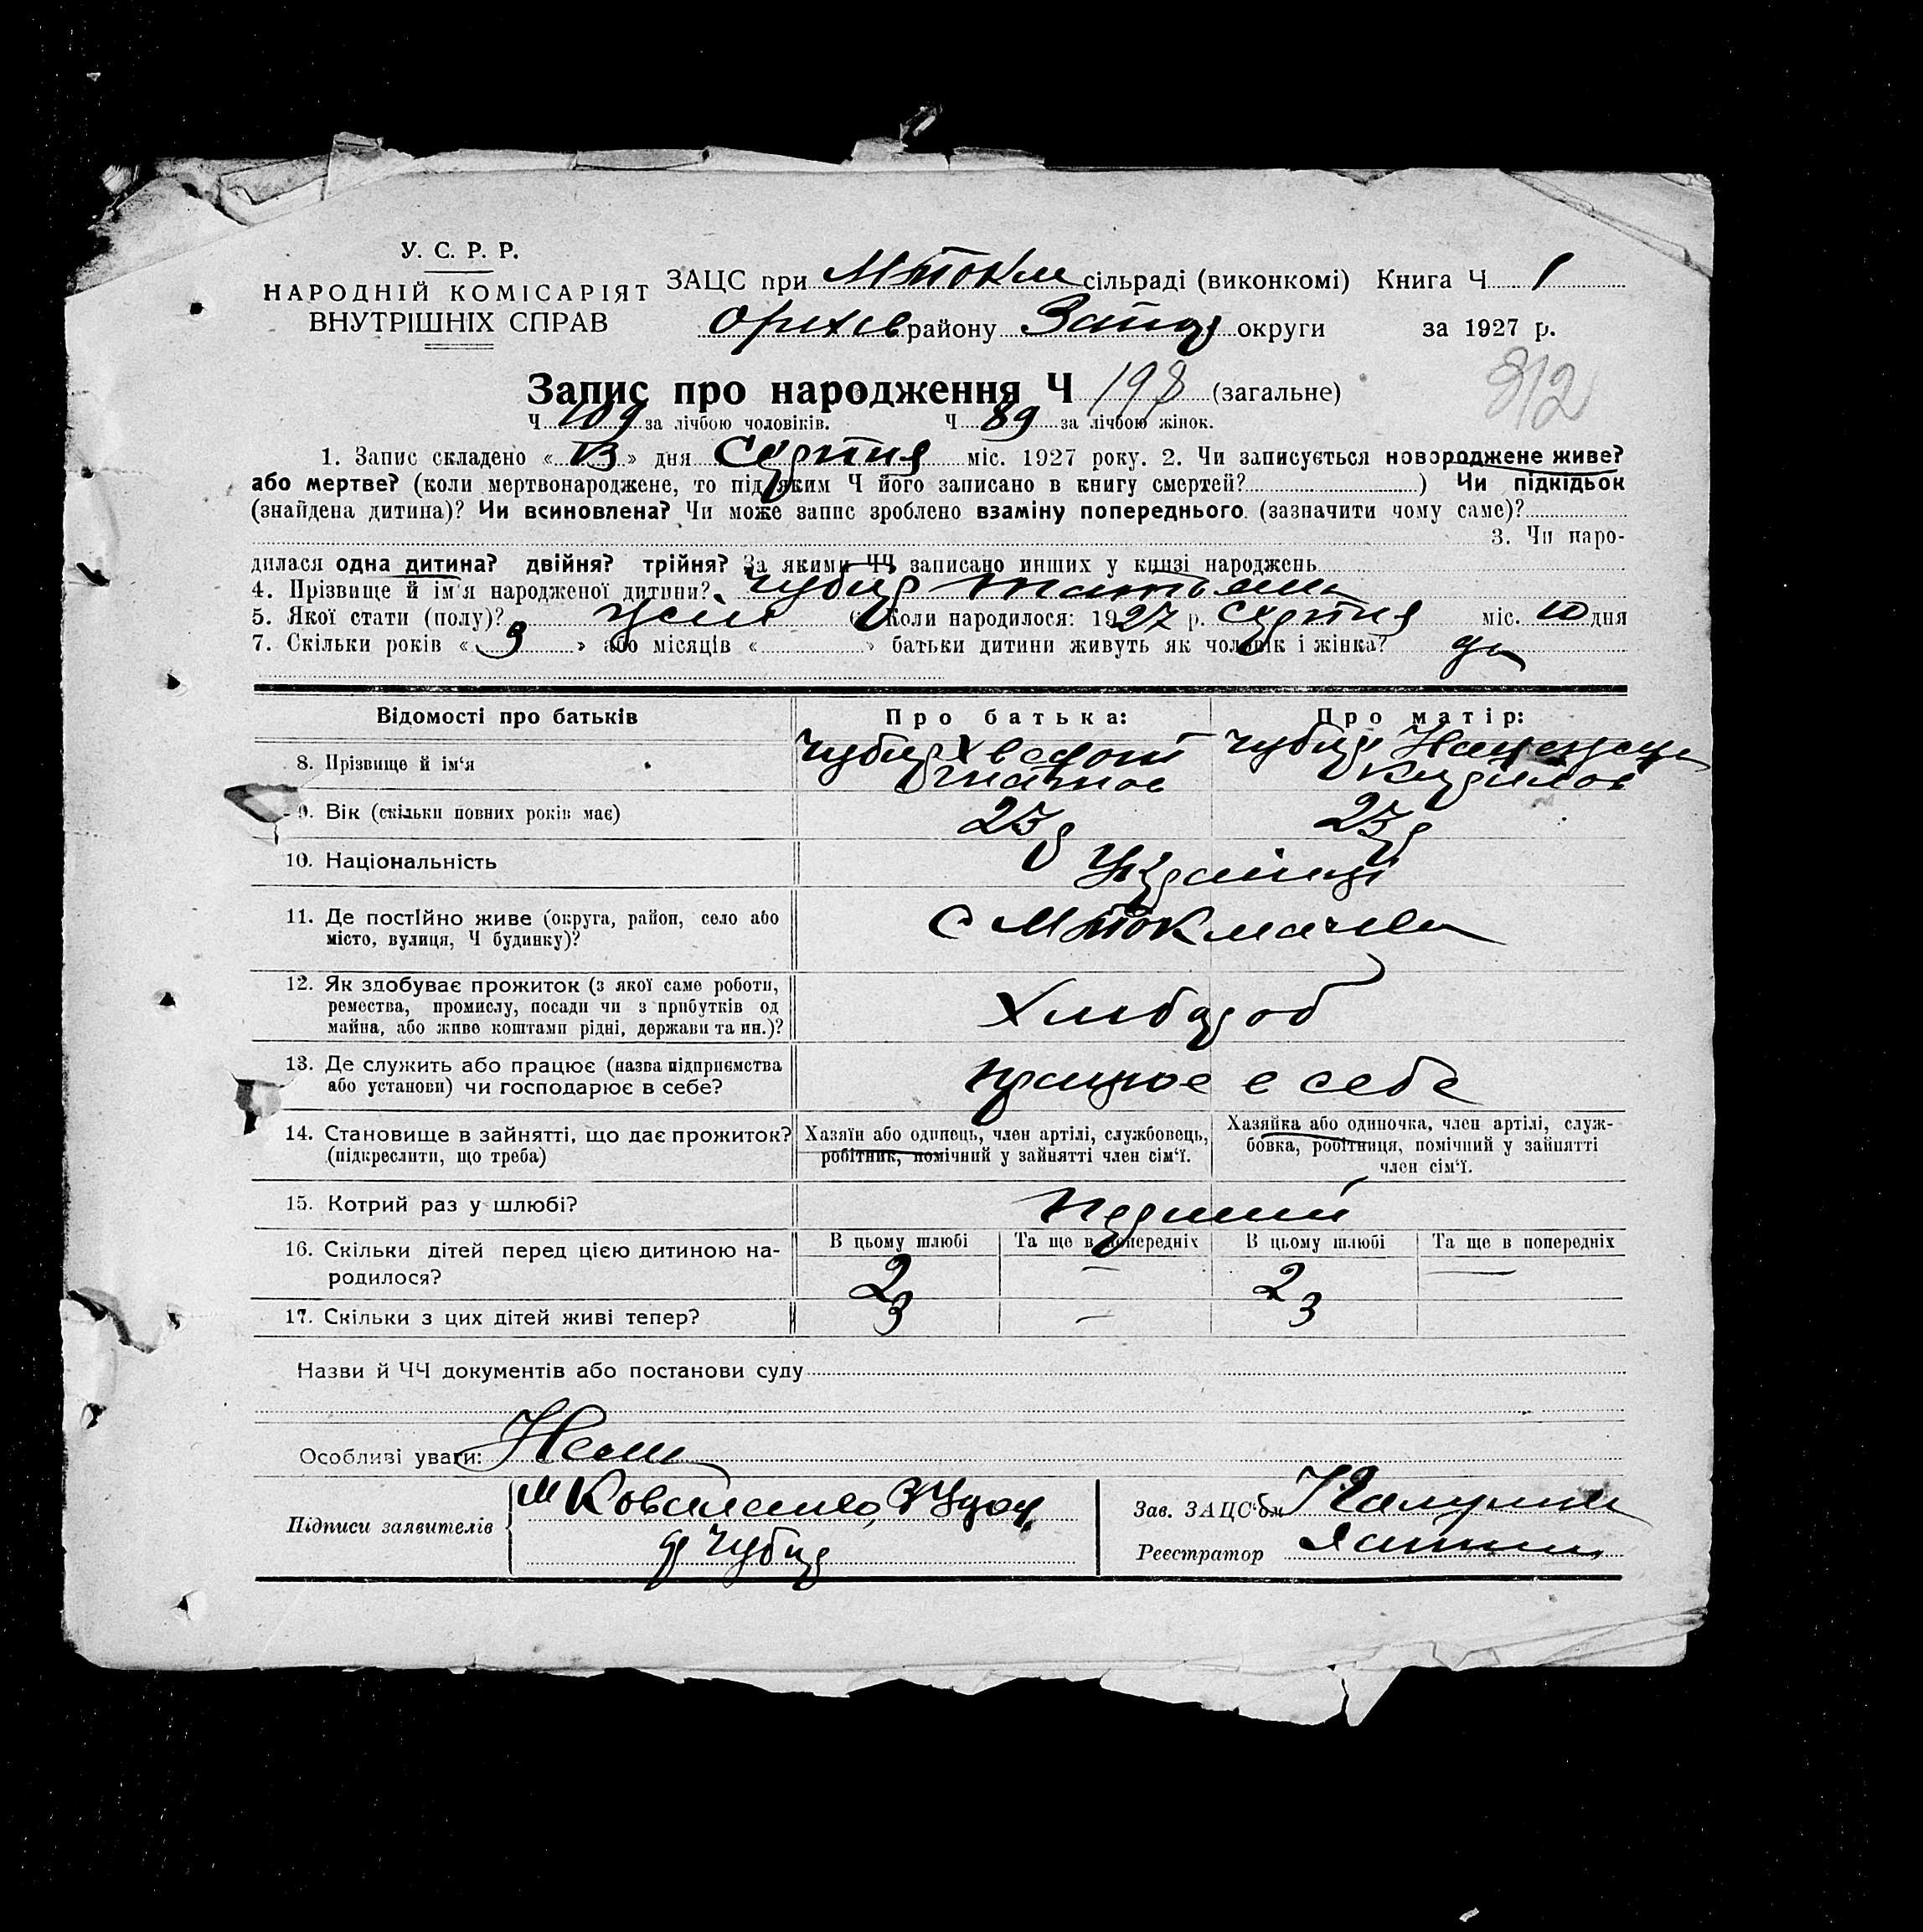 У. С. Р. Р.
НАРОДНІЙ КОМІСАРІЯТ
ВНУТРІШНІХ СПРАВ
ЗАЦС при М Токм сільраді (виконкомі) Книга Ч 1
Оріхів району Запор округи за 1927 р.
312
Запис про народження Ч 198 (загальне)
Ч 109 за лічбою чоловіків. Ч 89 за лічбою жінок.
1. Запис складено « 13 » дня Серпня міс. 1927 року. 2. Чи записується новороджене живе?
або мертве? (коли мертвонароджене, то під яким Ч його записано в книгу смертей? ) Чи підкідьок
(знайдена дитина)? Чи всиновлена? Чи може запис зроблено взаміну попереднього (зазначити чому саме)?
3. Чи наро-
дилася одна дитина? двійня? трійня? За якими ЧЧ записано инших у книзі народжень
4. Прізвище й ім'я народженої дитини? Чубар Татьяна
5. Якої стати (полу)? жін 6. Коли народилося: 1927 р. серпня міс. 10 дня
7. Скільки років « 9 » або місяців « » батьки дитини живуть як чоловік і жінка? да
Відомості про батьків Про батька: Про матір:
8. Прізвище й ім'я Чубар Хведот Чубар
Гнатов
9. Вік (скільки повних років має)
10. Національність Україн
11. Де постійно живе (округа, район, село або
місто, вулиця, Ч будинку)? с М Токмачка
12. Як здобуває прожиток (з якої саме роботи,
ремества, промислу, посади чи з прибутків од
майна, або живе коштами рідні, держави та ин.)? Хлибороб
13. Де служить або працює (назва підприємства
або установи) чи господарює в себе? працює в себе
14. Становище в зайнятті, що дає прожиток?
(підкреслити, що треба)
Хазяїн або одинець, член артілі, службовець,
робітник, помічний у зайнятті член сім'ї.
Хазяйка або одиночка, член артілі, служ-
бовка, робітниця, помічний у зайнятті
член сім'ї.
15. Котрий раз у шлюбі? перший
16. Скільки дітей перед цією дитиною на-
родилося?
В цьому шлюбі Та ще в попередніх В цьому шлюбі Та ще в попередніх
2 — 2 —
17. Скільки з цих дітей живі тепер? 3 — 3
Назви й ЧЧ документів або постанови суду
Особливі уваги: Нема
Підписи заявителів М Коваленко,
Чубар
Зав. ЗАЦС'ом
Реєстратор